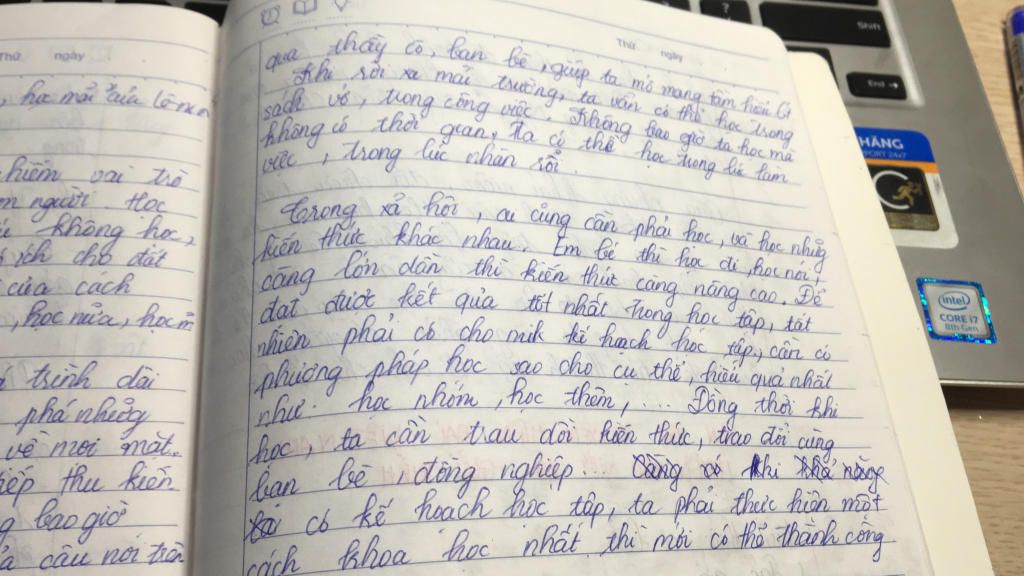 Thứ ngày
, học mãi của Lênin
hiếm vai trò
m người. Học
không học,
ích cho đất
của cách
, học nữa, học m
trình dài
phá những
về mọi mặt.
iếp thu kiến
g bao giờ
câu nói trên
Thứ ngày
qua thầy cô, bạn bè, giúp ta mở mang tầm hiểu
Khi rời xa mái trường, ta vẫn có thể học trong
sách vở, trong công việc. Không bao giờ ta học mà
không có thời gian, ta có thể học trong lúc làm
việc, trong lúc nhàn rỗi.
Trong xã hội, ai cũng cần phải học, và học những
kiến thức khác nhau. Em bé thì học đi, học nói,
càng lớn dần thì kiến thức càng nâng cao. Để
đạt được kết qủa tốt nhất trong học tập, tất
nhiên phải có cho mik kế hoạch học tập, cần có
phương pháp học sao cho cụ thể, hiệu quả nhất
như học nhóm, học thêm, ... Đồng thời khi
học, ta cần trau dồi kiến thức, trao đổi cùng
bạn bè đồng nghiệp. khi
có kế hoạch học tập, ta phải thực hiện một
cách khoa học nhất thì mới có thể thành công
Shift
End
HÃNG
PORT 24x7
intel
CORE i7
8th Gen